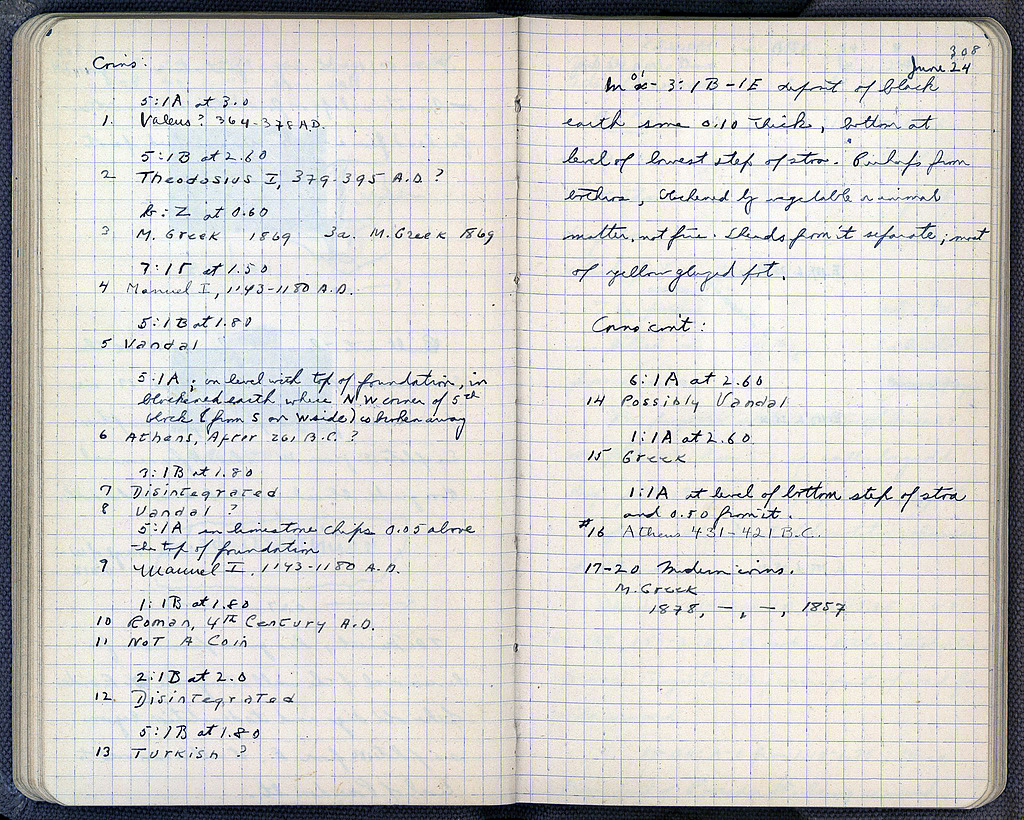 Coins:
5:1A at 3.0
1. Valens? 364-378 A.D.
5:1B at 2.60
2 Theodosius I, 379-395 A.D ?
at 0.60
3 M. Greek 1869 3a. M. Greek 1869
7:1Γ at 1.50
4 Manuel I, 1143-1180 A.D.
5:1B at 1.80
5 Vandal
5:1A ; on level with top of foundation, in
blackened earth where N.W corner of 5th
block (from S on W side) is broken away
6 Athens, After 261 B.C. ?
3:1B at 1.80
7 Disintegrated
8 Vandal ?
5:1A in limestone chips 0.05 above
the top of foundation
9 Manuel I, 1143-1180 A.D.
1:1B at 1.80
10 Roman, 4th Century A.D.
11 Not A Coin
2:1B at 2.0
12. Disintegrated
5:1B at 1.80
13 Turkish ?
308
June 24
In 3:1B-1E deposit of black
earth some 0.10 thick, bottom at
level of lowest step of stoa. Perhaps from
bothros, blackened by vegetable or animal
matter, not fire. Sherds from it separate; most
of yellow glazed pot.
Coins con't:
6:1A at 2.60
14 Possibly Vandal
1:1A at 2.60
15 Greek
1:1A at level of bottom step of stoa
and 0.50 from it.
#16 Athens 431-421 B.C.
17-20 Modern coins.
M. Greek
1878, —, —, 1857